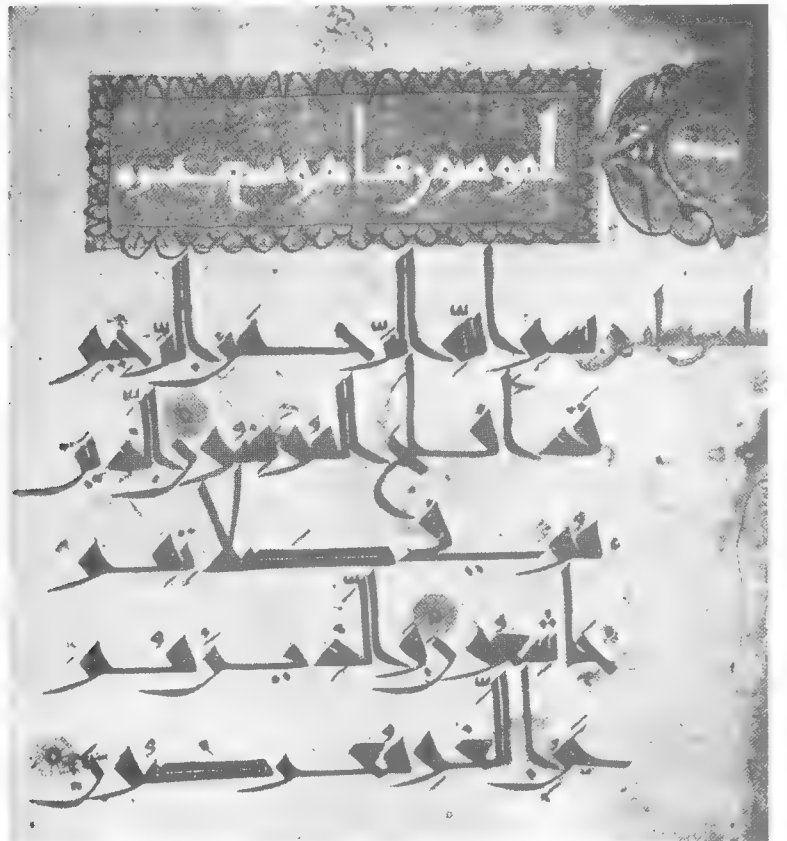 المومنون
بِسْمِ اللّٰهِ الرَّحْمٰنِ الرَّحِيْمِ
قَدْ اَفْلَحَ الْمُؤْمِنُوْنَ الَّذِيْنَ
هُمْ فِيْ صَلَاتِهِمْ
خَاشِعُوْنَ وَالَّذِيْنَ هُمْ
عَنِ اللَّغْوِ مُعْرِضُوْنَ